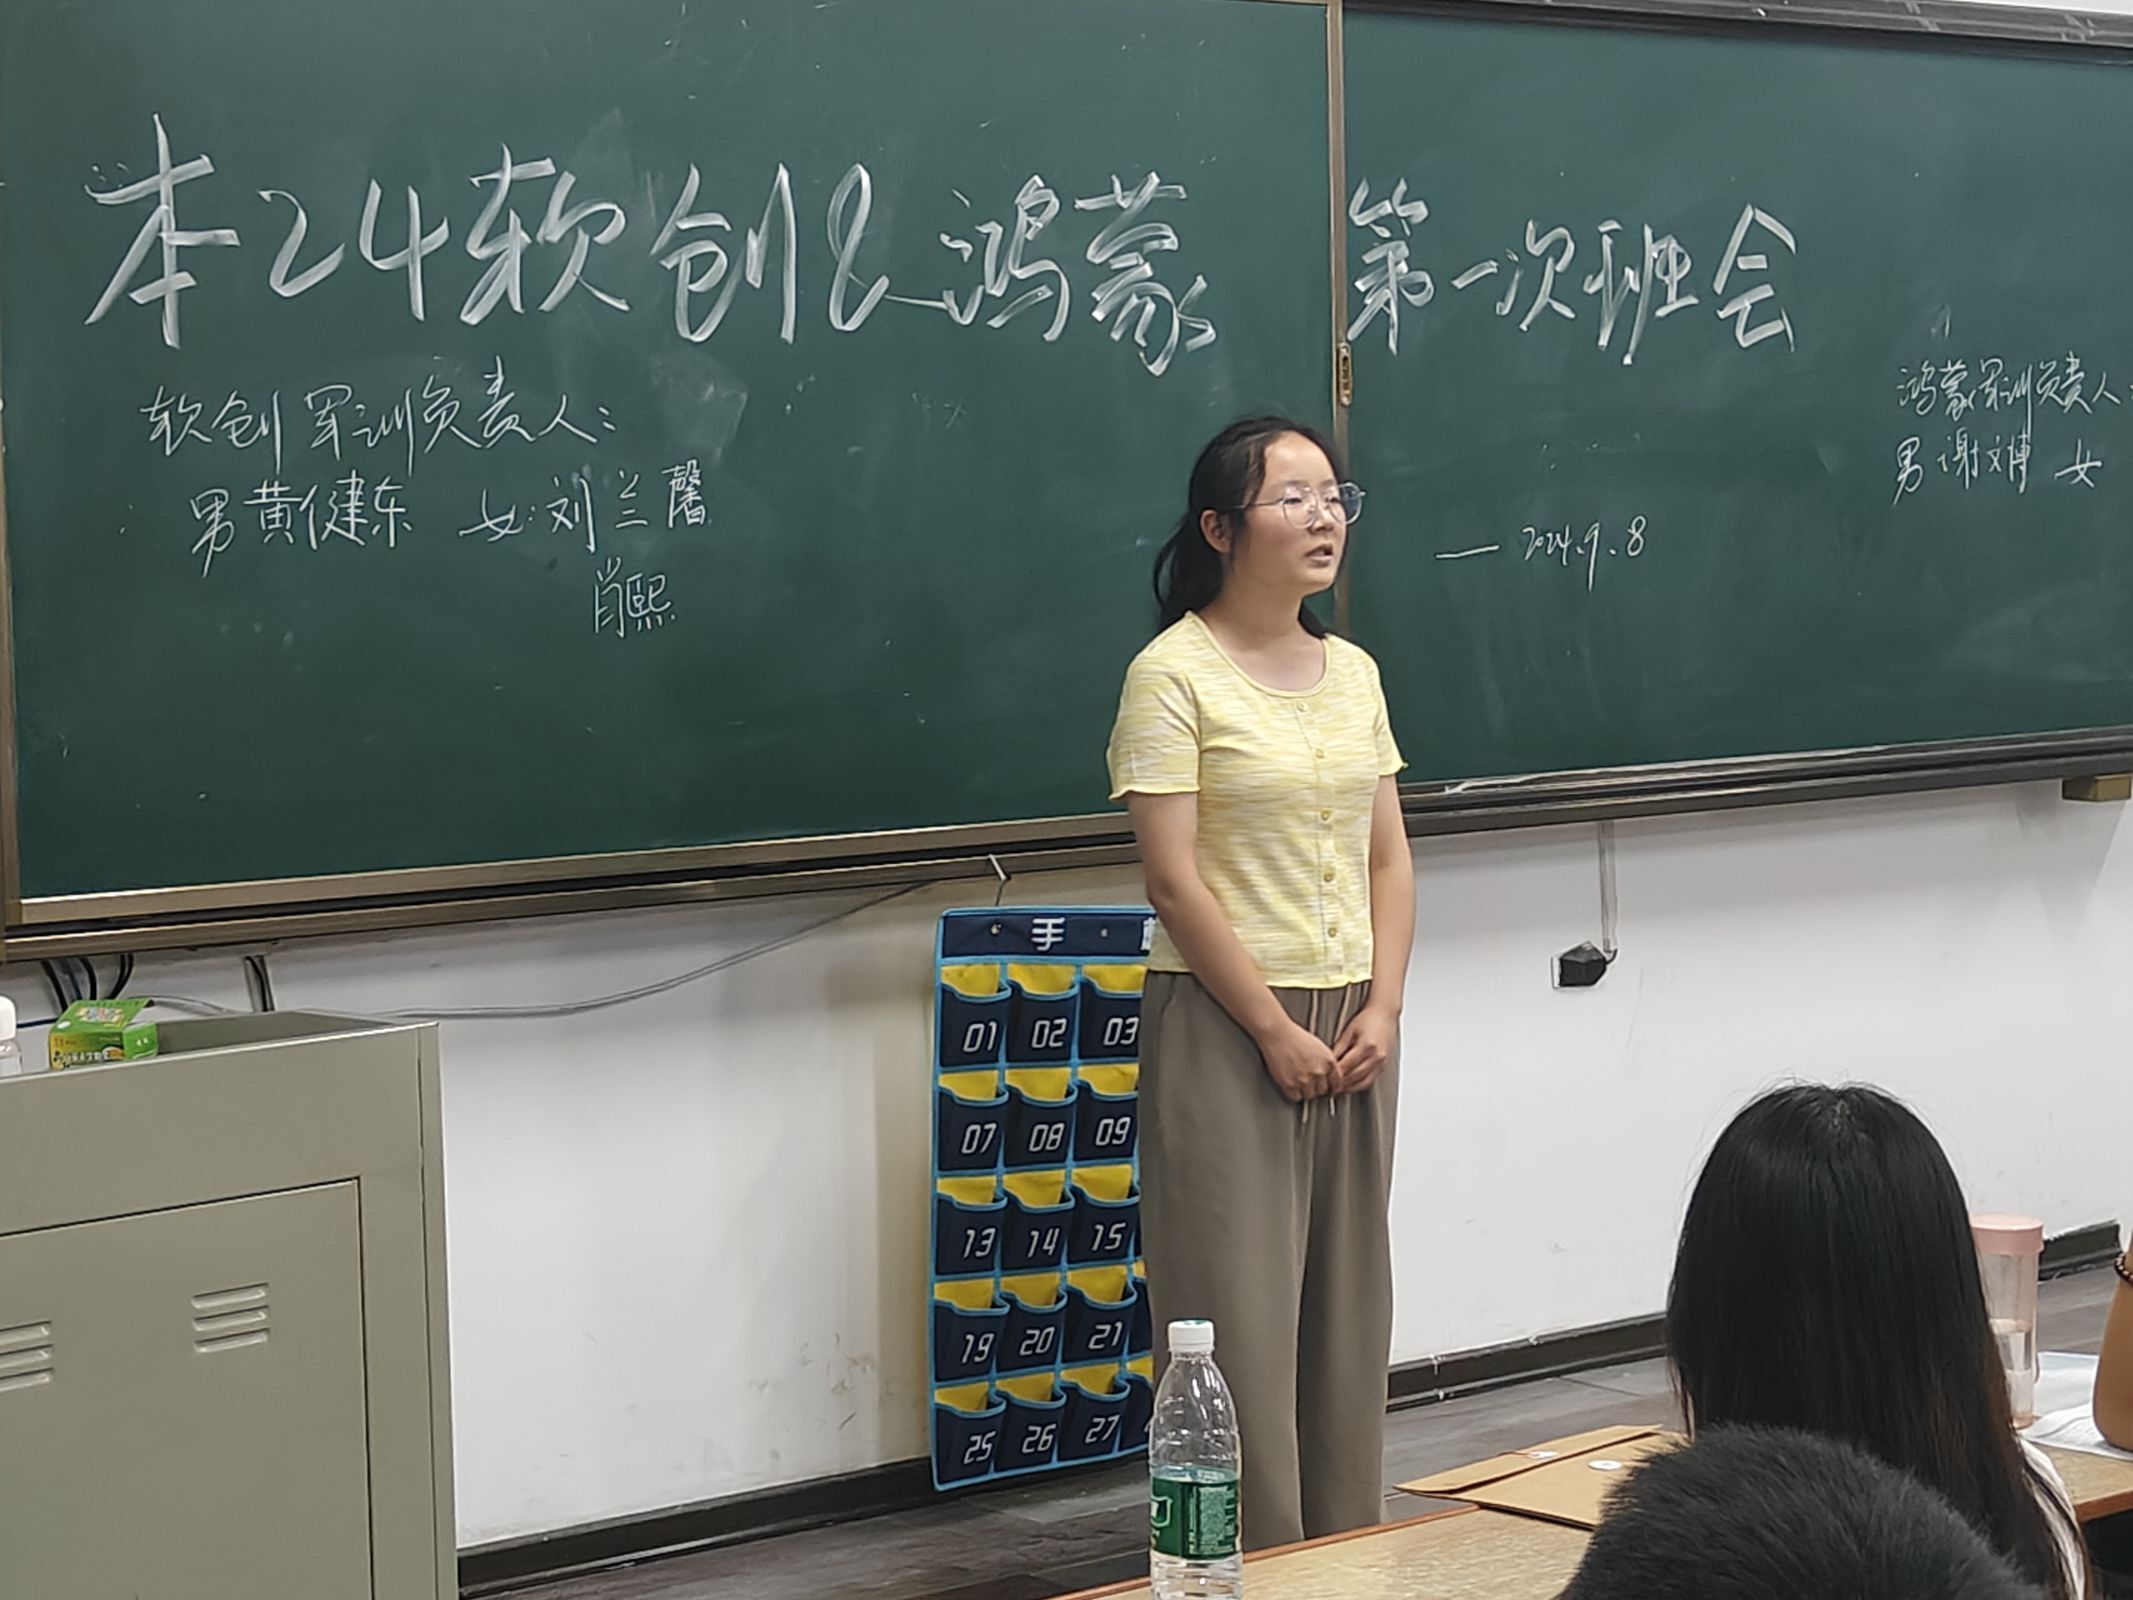 本24软创&鸿蒙 第一次班会
软创军训负责人:
男黄健东 女:刘兰馨
肖熙
— 2024.9.8
鸿蒙军训负责人:
男谢文博 女
手
01 02 03
07 08 09
13 14 15
19 20 21
25 26 27